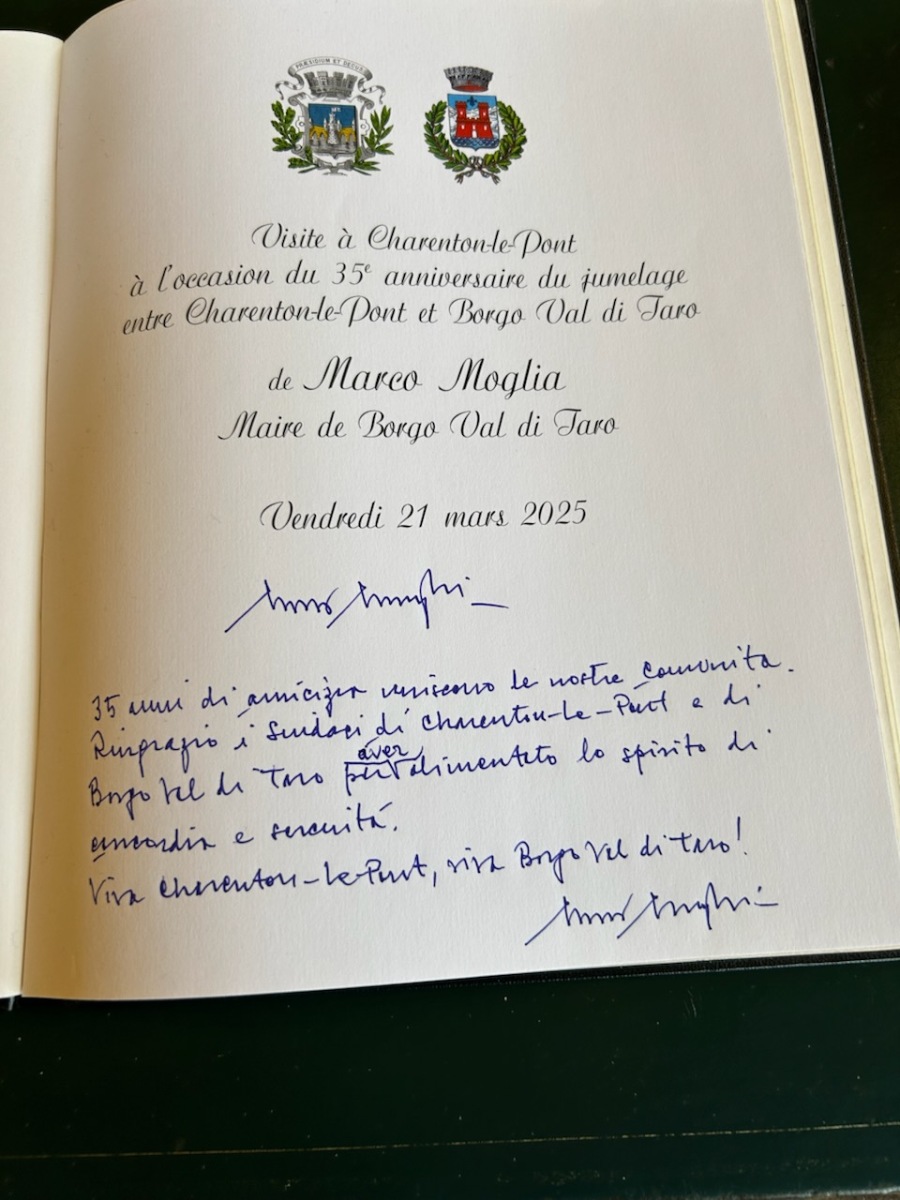 PRÆSIDIUM ET DECUS
Visite à Charenton-le-Pont
à l'occasion du 35e anniversaire du jumelage
entre Charenton-le-Pont et Borgo Val di Taro
de Marco Moglia
Maire de Borgo Val di Taro
Vendredi 21 mars 2025
35 anni di amicizia uniscono le nostre comunità.
Ringrazio i Sindaci di Charenton-le-Pont e di
aver
Borgo Val di Taro per alimentato lo spirito di
concordia e serenità.
Viva Charenton-le-Pont, viva Borgo Val di Taro!